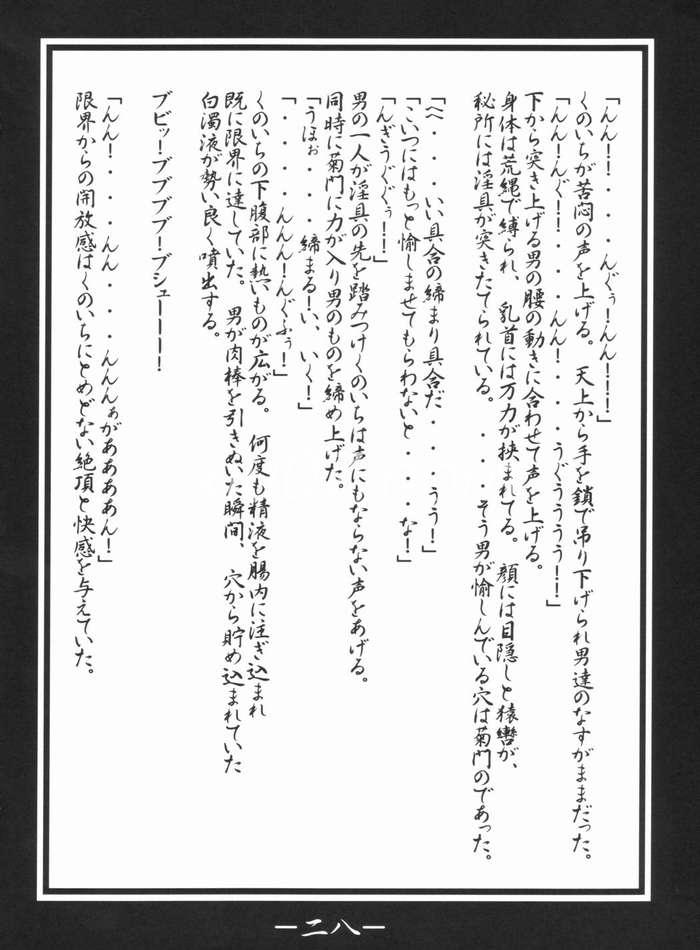 「んん！！．．．んぐぅ！んん！ーー！」
くのいちが苦悶の声を上げる。　天上から手を鎖で吊り下げられ男達のなすがままだった。
「んん！んぐ！！．．．んん！．．．うぐうううう！！」
下から突き上げる男の腰の動きに合わせて声を上げる。
身体は荒縄で縛られ、　乳首には万力が挟まれてる。　顔には目隠しと猿轡が、
秘所には淫具が突きたてられている。　．．．そう男が愉しんでいる穴は菊門のであった。
「へ．．．いい具合の締まり具合だ．．．うう！」
「こいつにはもっと愉しませてもらわないと．．．な！」
「んぎうぐぐぅ！！」
男の一人が淫具の先を踏みつけくのいちは声にもならない声をあげる。
同時に菊門に力が入り男のものを締め上げた。
「うほぉ．．．締まる！い、いく！」
「．．．．んんん！んぐふぅ！」
くのいちの下腹部に熱いものが広がる。　何度も精液を腸内に注ぎ込まれ
既に限界に達していた。　男が肉棒を引きぬいた瞬間、　穴から貯め込まれていた
白濁液が勢い良く噴出する。
ブビッ！ブブブブ！ブシューーー！
「んん！．．．んん．．．んんんぁがああああん！」
限界からの開放感はくのいちにとめどない絶頂と快感を与えていた。
―二八―